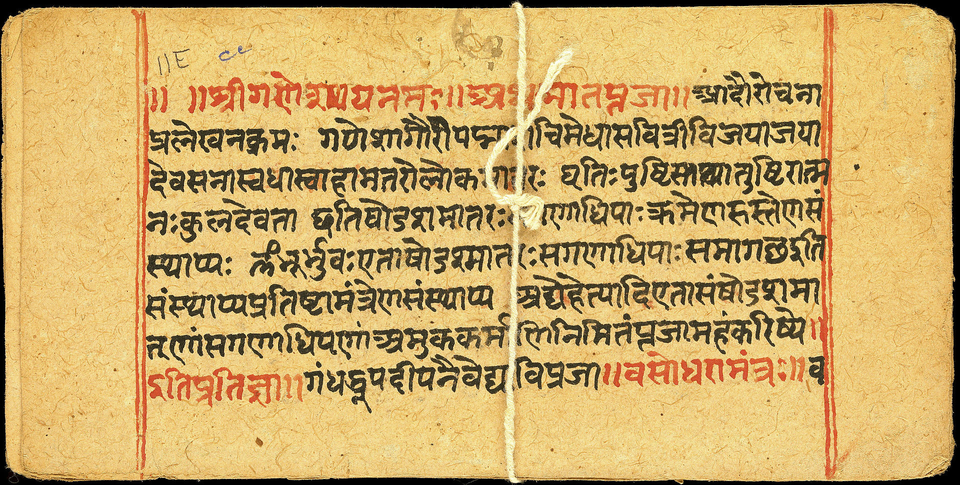 ॥ ॥श्रीगणेशायनमः॥अथ मातृपूजा॥आदौरोचना
प्रलेखनक्रमः गणेशागौरीपद्मा शचिमेधासवित्रीविजयाजया
देवसेनास्वधास्वाहामातरोलोकमातरः धृतिःपुष्टिस्तथातुष्टिरात्म
नःकुलदेवता इतिषोडशमातरः सगणाधिपाःक्रमेणहस्तेणसं
स्थाप्यः ॐभूर्भुवःएताषोडशमातरःसगणाधिपाःसमागछइति
संस्थाप्यप्रतिष्टामंत्रेणसंस्थाप्य अद्येहेत्यादिएतासंषोडशमा
तृणांसगणाधिपणां अमुककर्मणिनिमितंपूजामहंकरिष्ये॥
इतिप्रतिज्ञा॥गंधधूपदीपनैवेद्यविपूजा॥वसोधरामंत्रः॥व